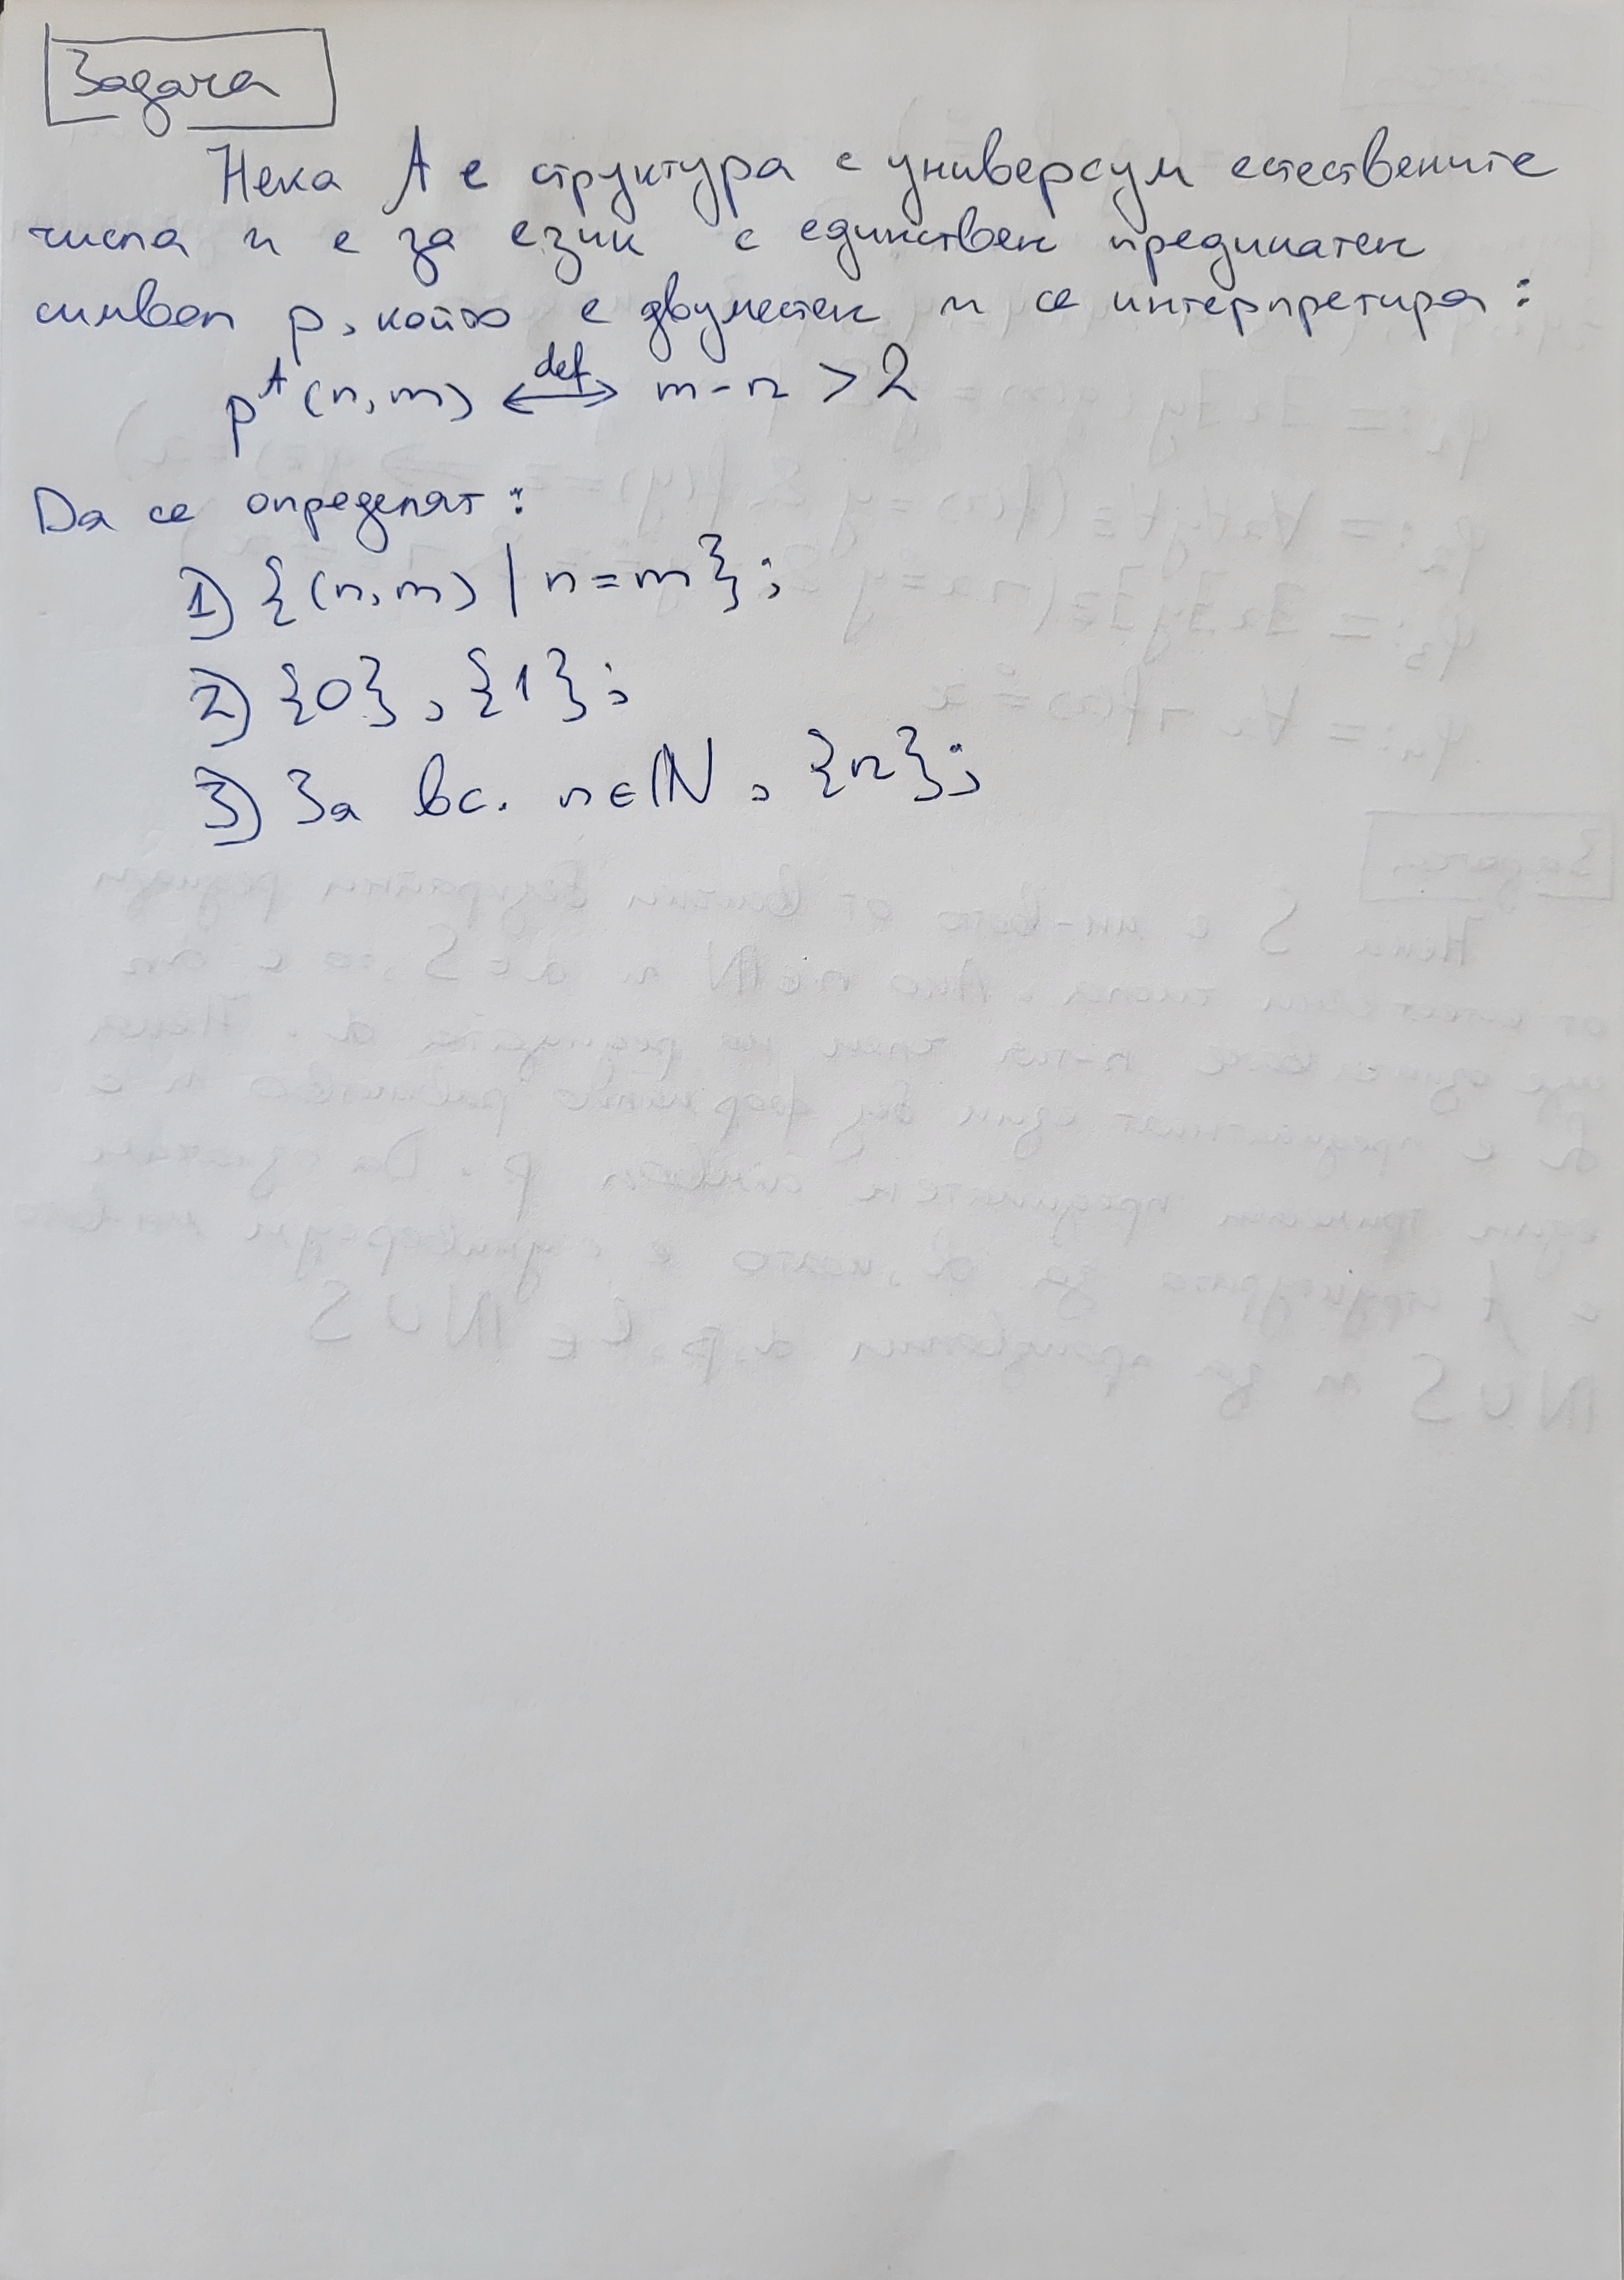 Задача
Нека A е структура с универсум естествените
числа и е за език с единствен предикатен
символ p, който е двуместен и се интерпретира:
p^A (n,m) <-def-> m-n > 2
Да се определят:
1) {(n,m) | n=m};
2) {0}, {1};
3) За вс. n∈ℕ, {n};